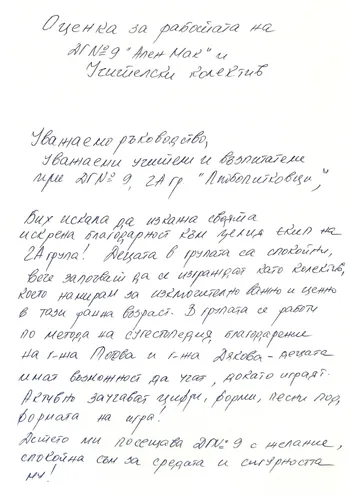 Оценка за работата на
ДГ№9 "Ален Мак" и
Учителски колектив
Уважаемо ръководство,
Уважаеми учители и възпитатели
при ДГ№ 9, 2А гр "Любопитковци",
Бих искала да изкажа своята
искрена благодарност към целия екип на
2А група! Децата в групата са спокойни,
вече започват да се изграждат като колектив,
което намирам за изключително важно и ценно
в тази ранна възраст. В групата се работи
по метода на сугестопедия, благодарение
на г-жа Тотова и г-жа Дякова - децата
имат възможност да учат, докато играят.
Активно заучават цифри, форми, песни под
формата на игра!
Детето ми посещава ДГ№9 с желание,
спокойна съм за средата и сигурността
му!